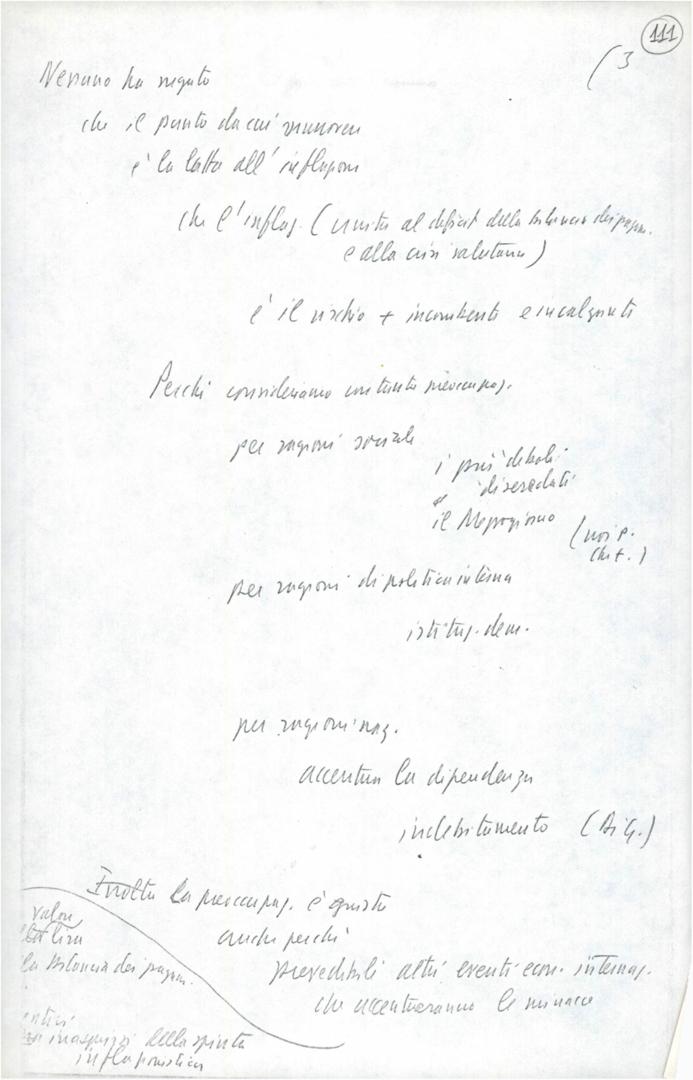 111
(3
Nessuno ha negato
che il punto da cui muovere
è la lotta all'inflazione
che l'inflaz. (unita al deficit della bilancia dei pagam.
e alla crisi valutaria)
è il rischio + incombente e incalzante
Perché consideriamo con tanta preoccupaz.
per ragioni sociali
i più deboli
diseredati
il Mezzogiorno
per ragioni di politica interna
istituz. dem.
per ragioni naz.
accentua la dipendenza
indebitamento
Inoltre la preoccupaz. è giusta
anche perché
prevedibili altri eventi econ. internaz.
che accentueranno le minacce
valore
lira
la bilancia dei pagam.
della spinta
inflazionistica